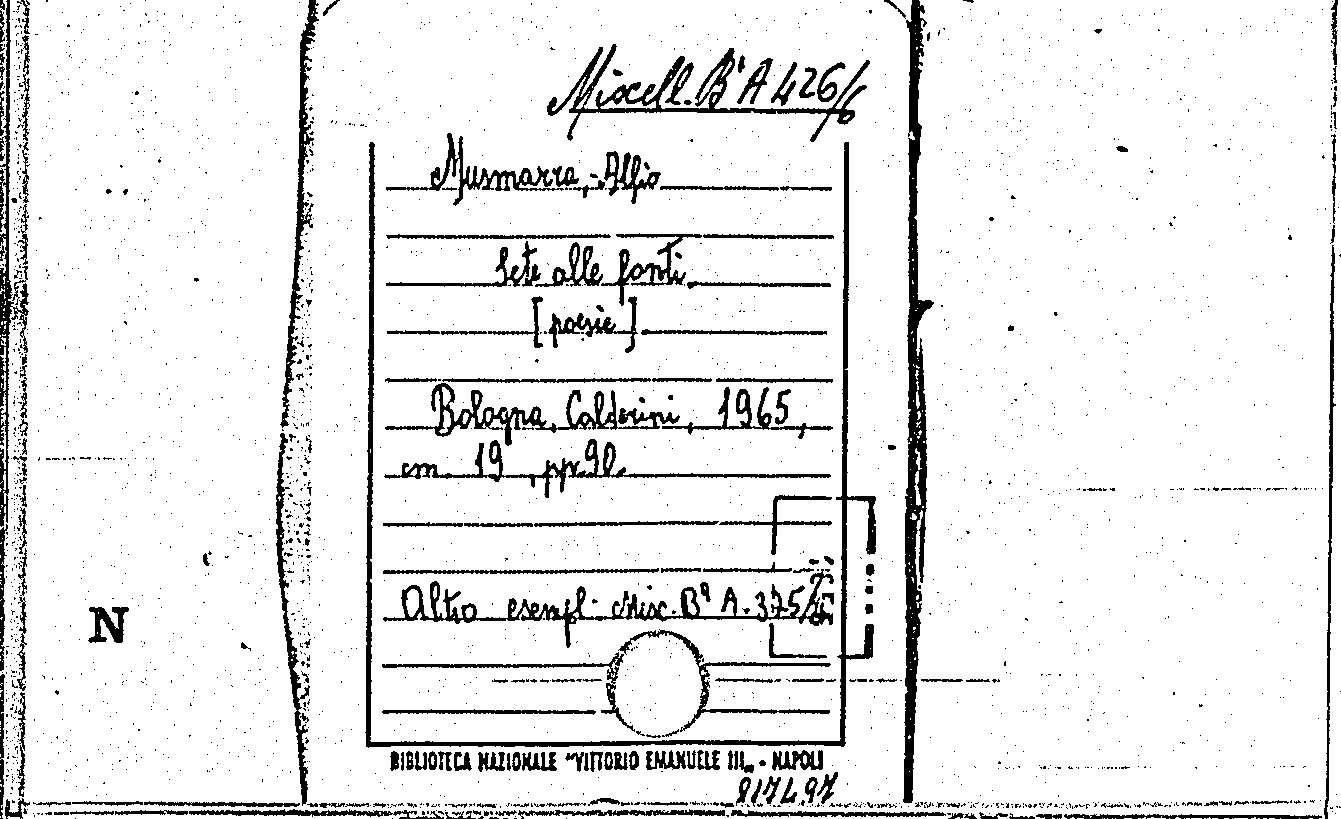 Miscell. Bª A 426/6
Musmarra, Alfio
Sete alle fonti.
[poesie].
Bologna, Calderini, 1965,
cm. 19, pp. 90.
Altro esempl. Misc. Bª A. 375/
N
BIBLIOTECA NAZIONALE "VITTORIO EMANUELE III„ - NAPOLI
817497